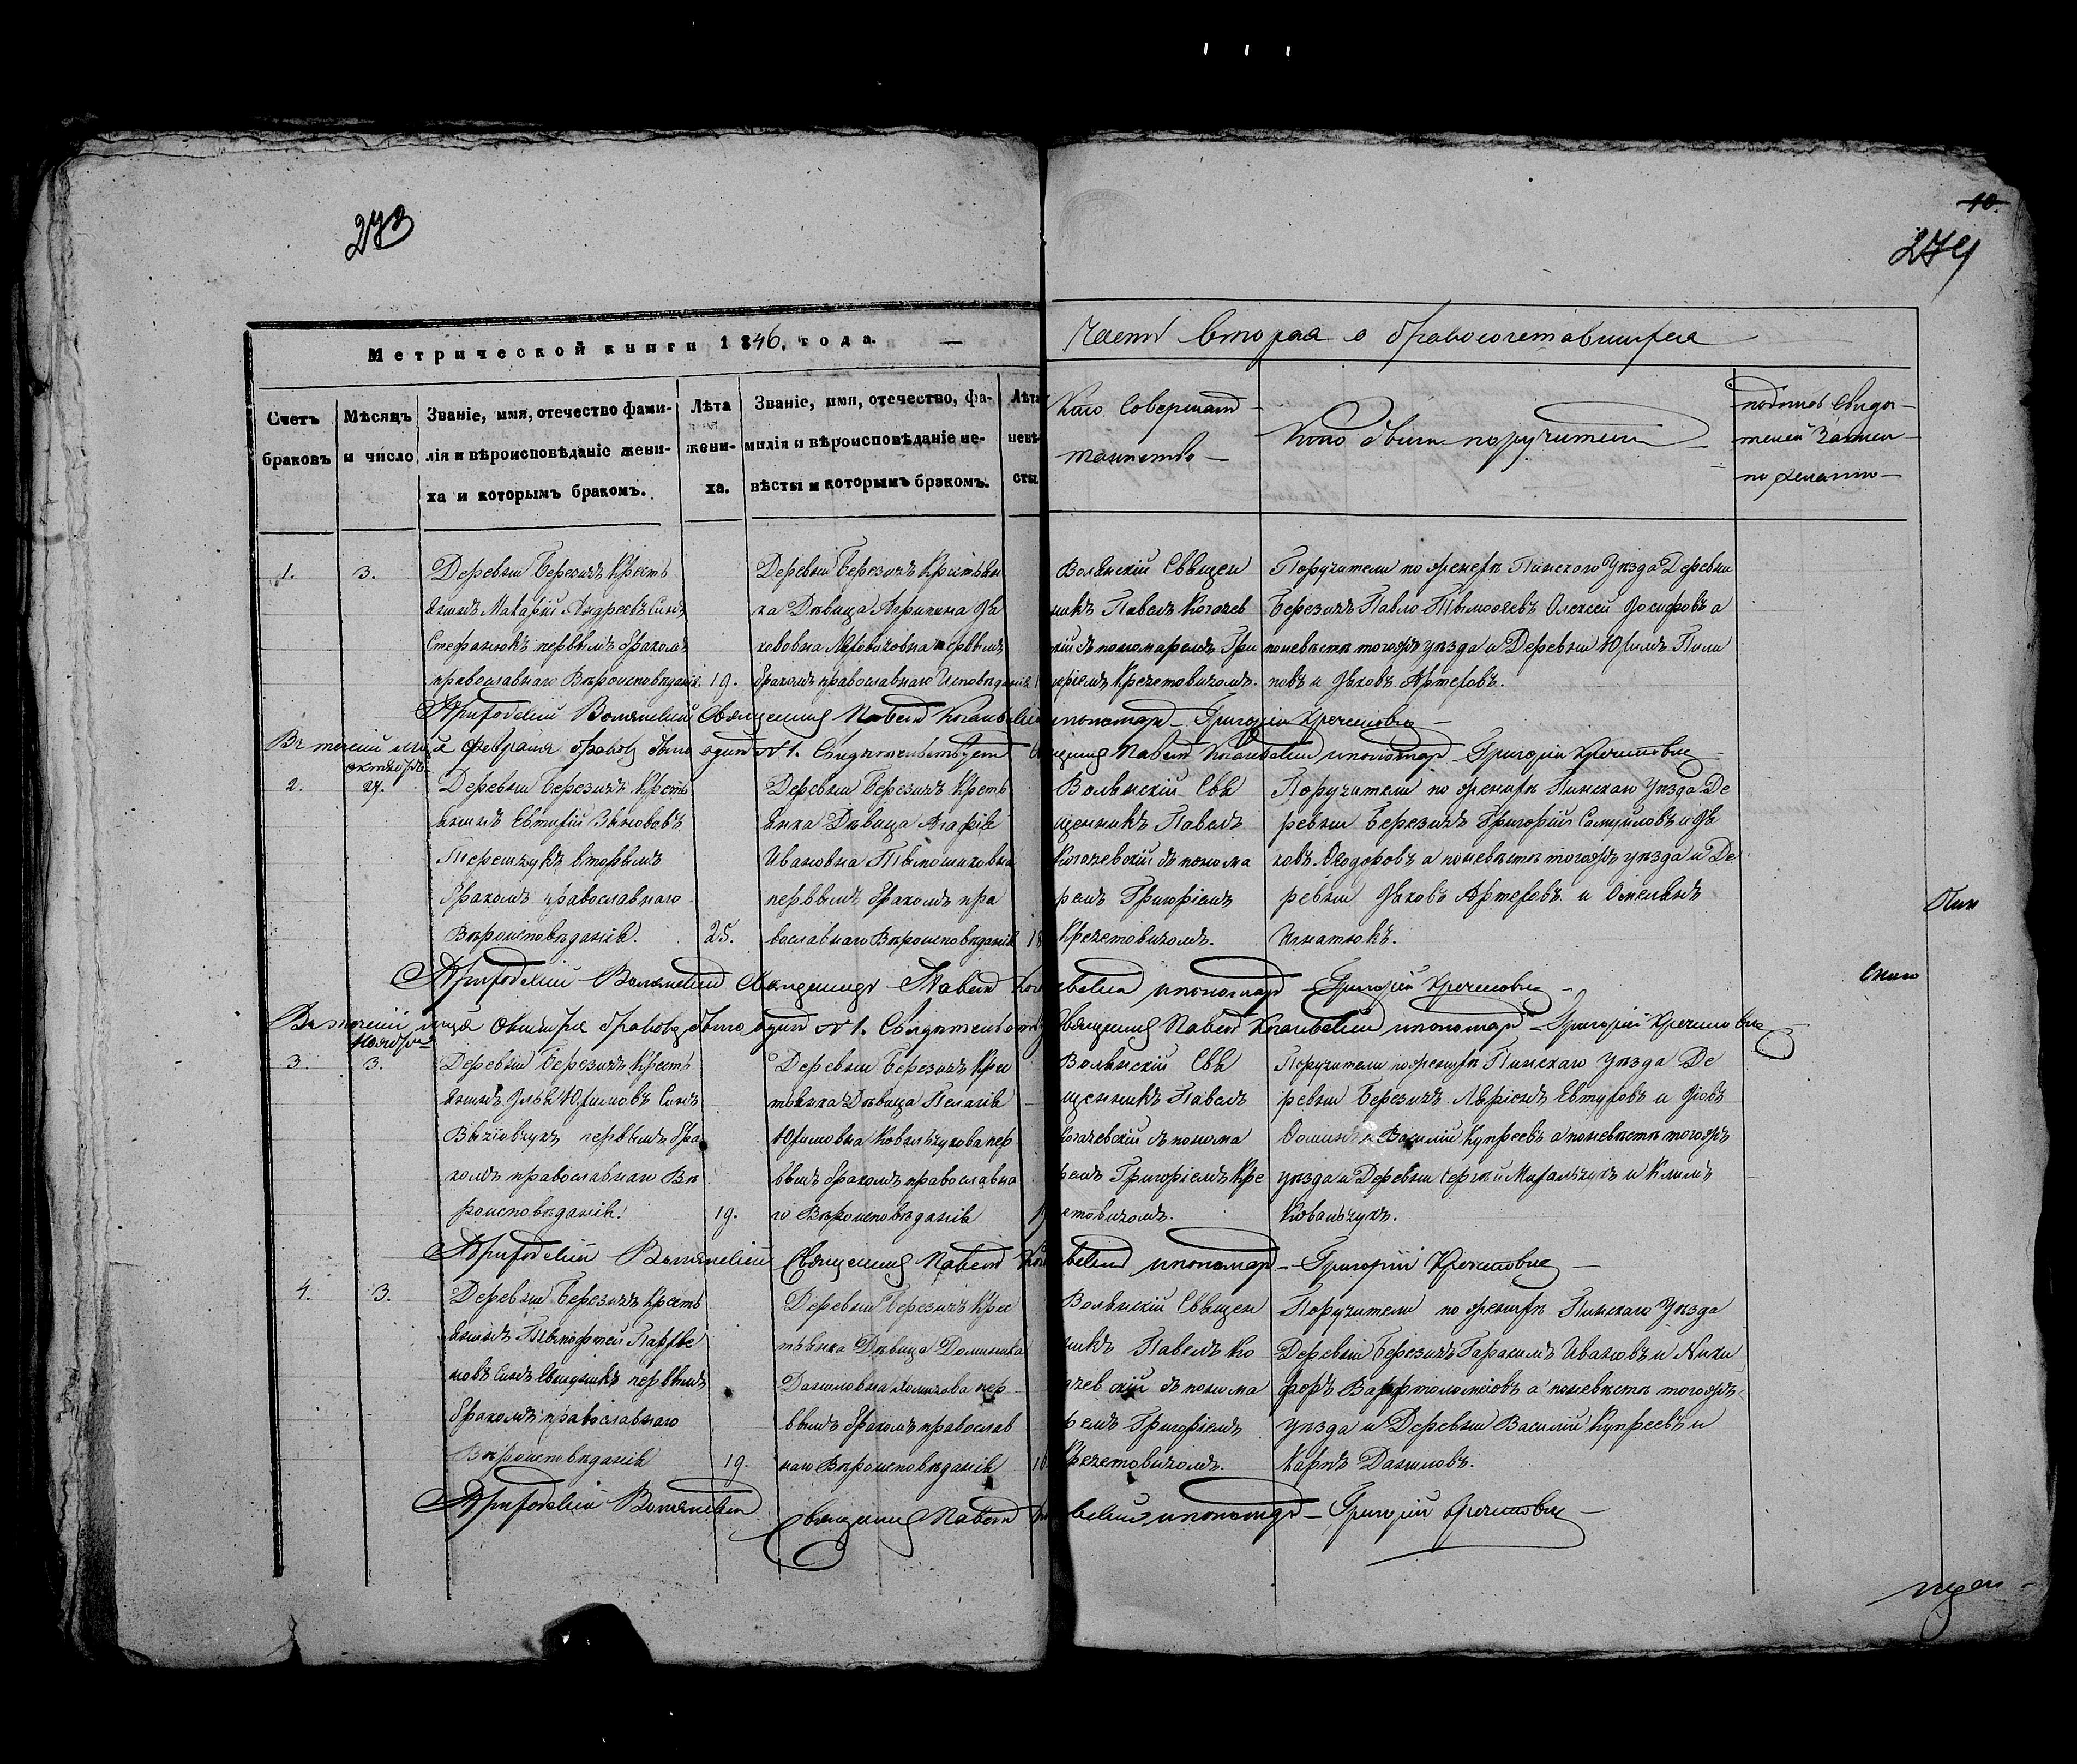 10.
273
274
Метрической книги 1846, года.
Часть вторая о бракосочетавшихся
Счетъ браковъ
Мѣсяцъ и число
Званіе, имя, отечество фами-
лія и вѣроисповѣданіе жени-
ха и которымъ бракомъ.
Лѣта
жени-
ха.
Званіе, имя, отечество, фа-
милія и вѣроисповѣданіе не-
вѣсты и которымъ бракомъ.
Лѣта
невѣ-
сты
Кто Совершалъ
таинство
Кто были поручители
подпись свидѣ-
телей Записи
по желанію
1.
3.
Деревни Березичъ Кресть
янинъ Макарій Андреевъ Сынъ
Стефанюкъ первымъ бракомъ
православнаго Вѣроисповѣданія.
19.
Деревни Березичъ Крестьян
ка Дѣвица Агрипина Яко
кововна первымъ
бракомъ православнаго Исповѣданія
Волянскій Священ
никъ Павелъ Когачев
скій съ пономаремъ Гри
горіемъ Кречетовичомъ.
Поручители по женихѣ Пинскаго Уѣзда Деревни
Березичъ Павло Тымофеевъ Олексей Іосифовъ а
поневѣстѣ тогожъ уѣзда и Деревни Юхимъ Пили
повъ и Яковъ Артеховъ.
Приходскій Волянскій Священникъ Павелъ Когачевскій пономарь Григорій Кречетовичъ
Въ теченіи мѣсяца Февраля браковъ было одинъ № 1. Свидѣтельствуетъ Священникъ Павелъ Когачевскій пономарь Григорій Кречетовичъ
октября
2.
27.
Деревни Березичъ Кресть
янинъ Евтихій Зѣновавъ
Терешчукъ вторымъ
бракомъ православнаго
Вѣроисповѣданія.
25.
Деревни Березичъ Кресть
янка Дѣвица Агафія
Ивановна Тымошиковна
первымъ бракомъ пра
вославнаго Вѣроисповѣданія
18
Волянскій Свя
щенникъ Павелъ
Когачевскій съ понома
ремъ Григоріемъ
Кречетовичомъ.
Поручители по женихѣ Пинскаго Уѣзда Де
ревни Березичъ Григорій Самуиловъ и Я
ковъ Ѳеодоровъ а поневѣстѣ тогожъ уѣзда и Де
ревни Яковъ Артеховъ и Омельянъ
Игнатюкъ.
Приходскій Волянскій Священникъ Павелъ Когачевскій пономарь Григорій Кречетовичъ
Въ теченіи мѣсяца Октября браковъ было одинъ № 1. Свидѣтельствуетъ Священникъ Павелъ Когачевскій пономарь Григорій Кречетовичъ
Ноября
3.
3.
Деревни Березичъ Кресть
янинъ Илья Юхимовъ Сынъ
первымъ бра
комъ православнаго Вѣ
роисповѣданія.
19.
Деревни Березичъ Крес
тянка Дѣвица Пелагія
Юхимовна Ковальчукова пер
вымъ бракомъ православна
го Вѣроисповѣданія
Волянскій Свя
щенникъ Павелъ
Когачевскій съ понома
ремъ Григоріемъ Кре
четовичомъ.
Поручители по женихѣ Пинскаго Уѣзда Де
ревни Березичъ Ларіонъ Евтуховъ и Іовъ
Василій Купреевъ а поневѣстѣ тогожъ
уѣзда и Деревни Сергѣй Михальчукъ и Климъ
Ковальчукъ.
Приходскій Волянскій Священникъ Павелъ Когачевскій пономарь Григорій Кречетовичъ
4.
3.
Деревни Березичъ Кресть
янинъ Тымофтей Парфе
новъ Сынъ первымъ
бракомъ православнаго
Вѣроисповѣданія
19.
Деревни Березичъ Крес
тьянка Дѣвица Доминика
Даниловна пер
вымъ бракомъ православ
наго Вѣроисповѣданія
Волянскій Священ
никъ Павелъ Ко
гачевскій съ понома
ремъ Григоріемъ
Кречетовичомъ.
Поручители по женихѣ Пинскаго Уѣзда
Деревни Березичъ Гарасимъ Ивановъ и Ники
форъ Варфтоломеіовъ а поневѣстѣ тогожъ
уѣзда и Деревни Василій Купреевъ и
Карпъ Даниловъ.
Приходскій Волянскій Священникъ Павелъ Когачевскій пономарь Григорій Кречетовичъ